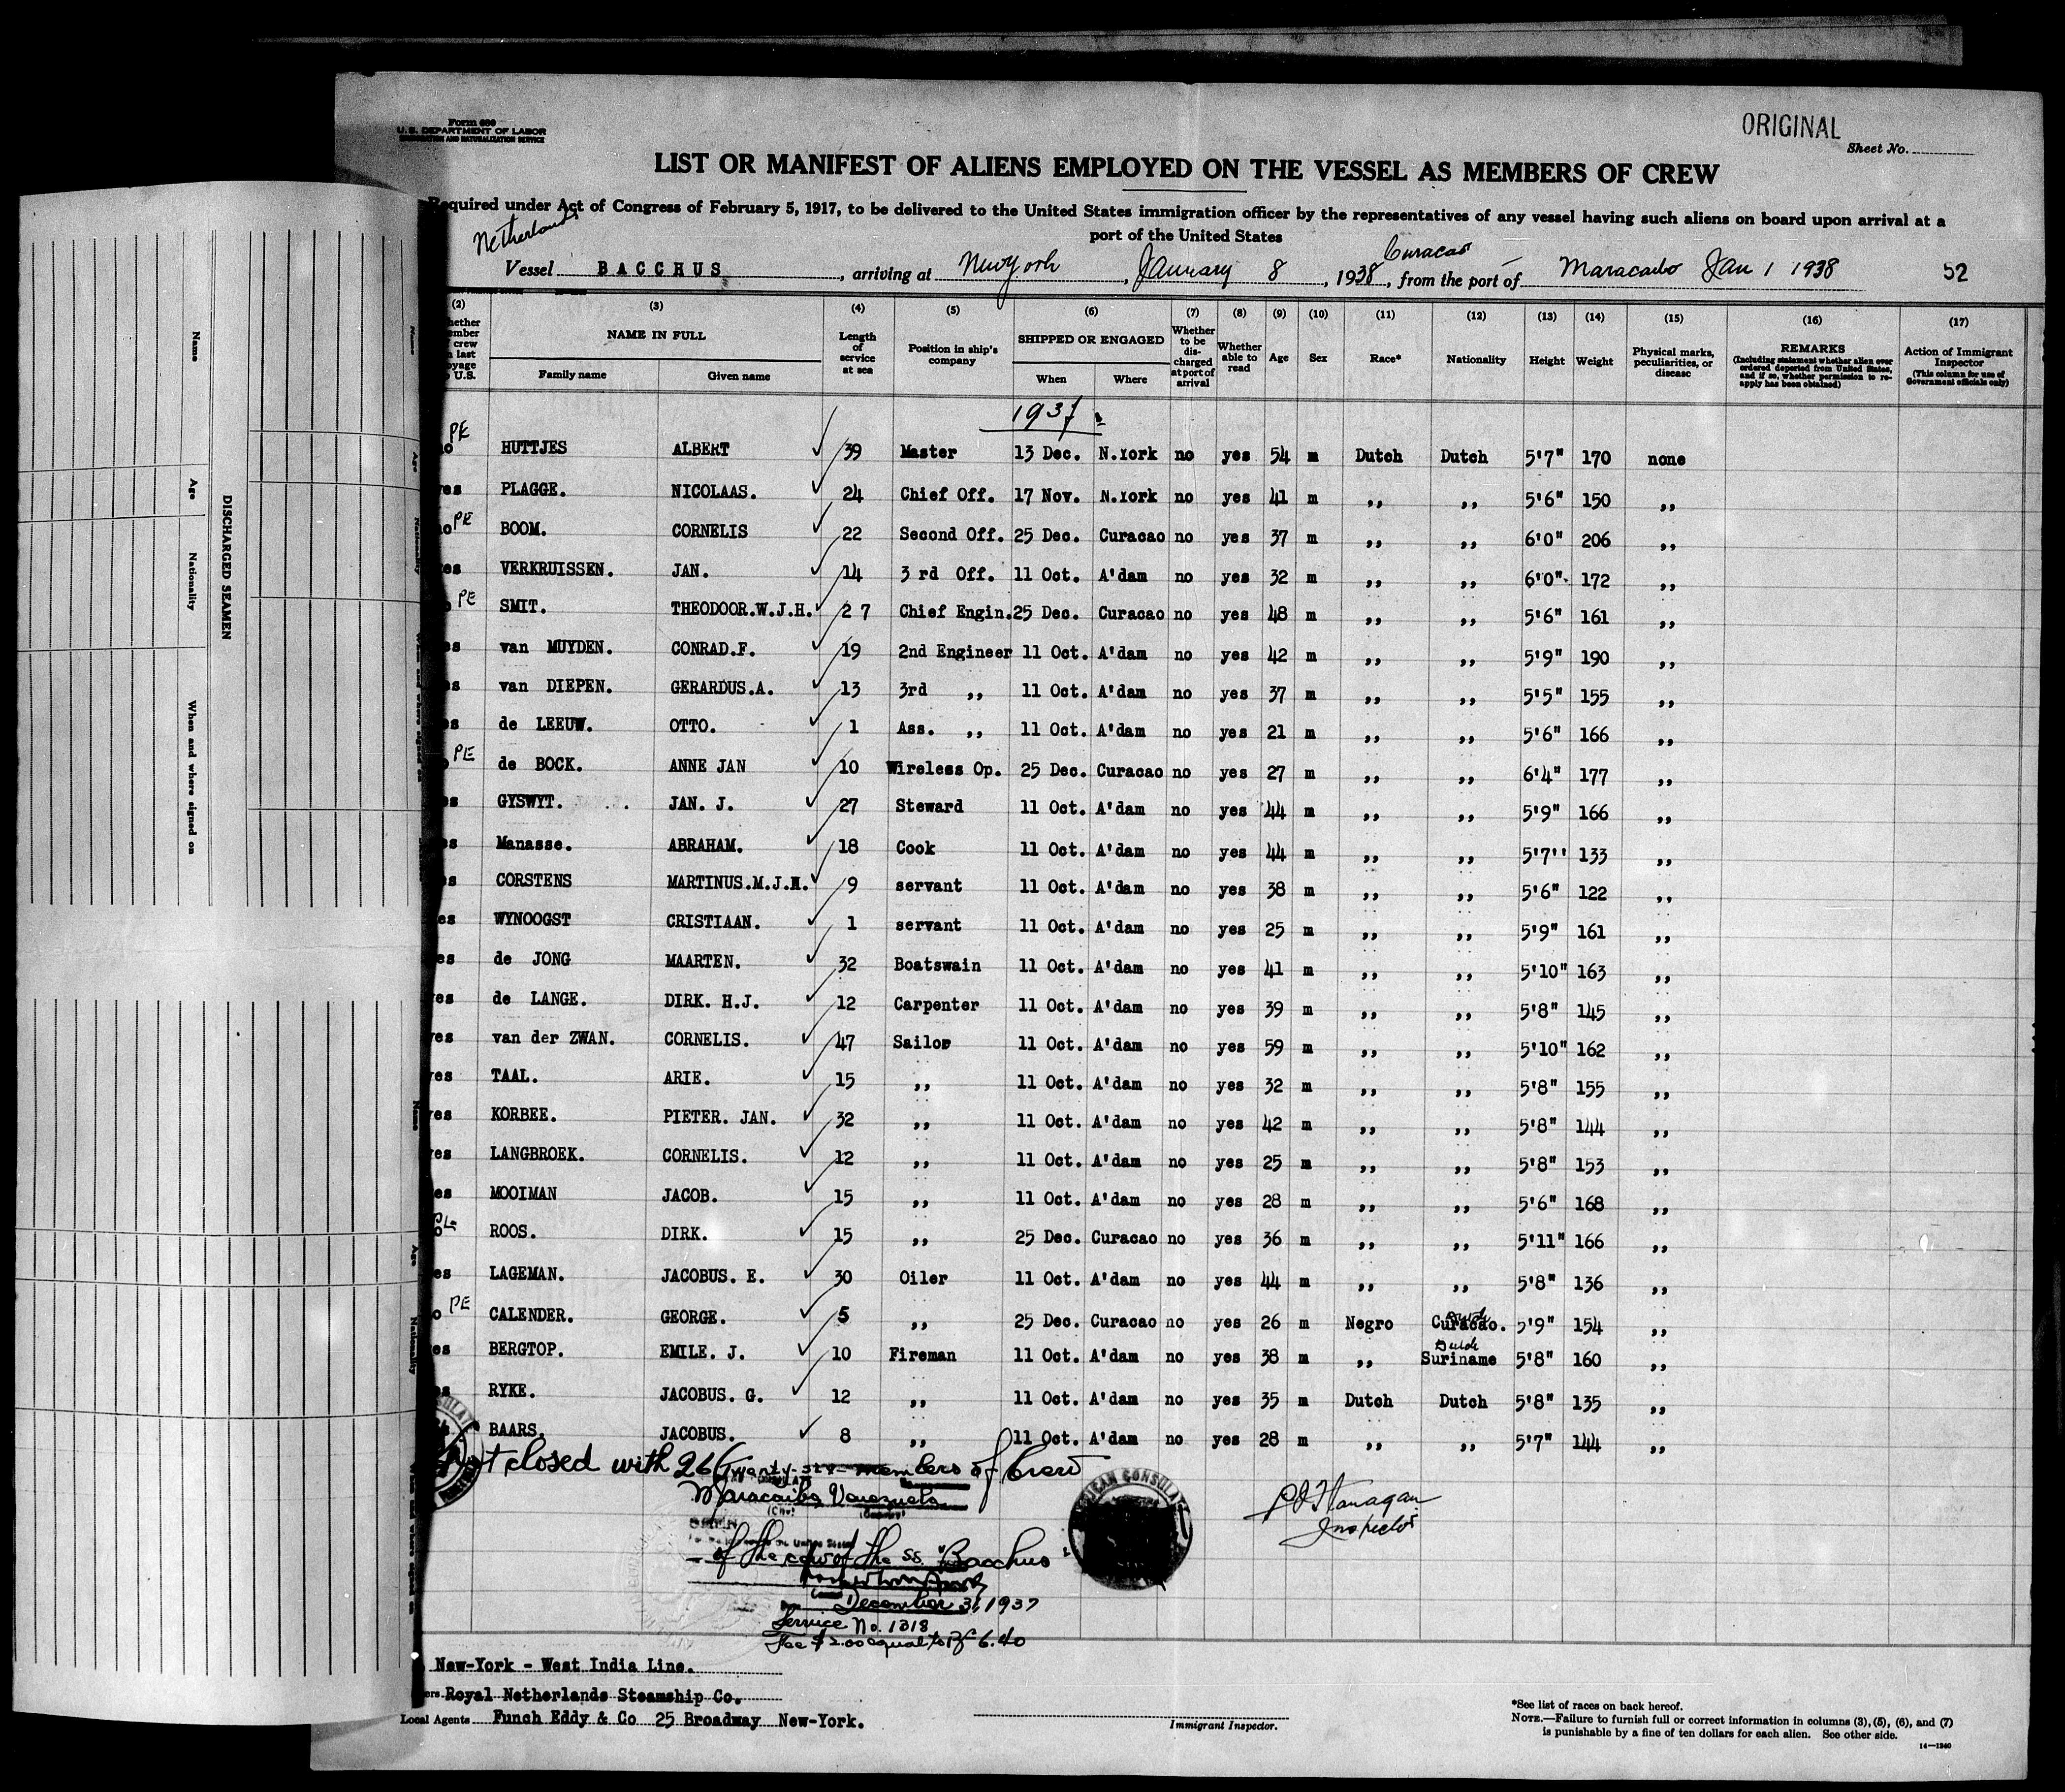 Form 680
U. S. DEPARTMENT OF LABOR
IMMIGRATION AND NATURALIZATION SERVICE
ORIGINAL
Sheet No.
LIST OR MANIFEST OF ALIENS EMPLOYED ON THE VESSEL AS MEMBERS OF CREW
Required under Act of Congress of February 5, 1917, to be delivered to the United States immigration officer by the representatives of any vessel having such aliens on board upon arrival at a
port of the United States
Netherlands
Vessel BACCHUS, arriving at New York, January 8, 1938, from the port of Curacao - Maracaibo Jan 1 1938 52
(2) (3) (4) (5) (6) (7) (8) (9) (10) (11) (12) (13) (14) (15) (16) (17)
NAME IN FULL Family name Given name
Length of service at sea
Position in ship's company
SHIPPED OR ENGAGED When Where
Whether to be discharged at port of arrival
Whether able to read
Age Sex Race* Nationality Height Weight
Physical marks, peculiarities, or disease
REMARKS
(Including statement whether alien ever ordered deported from United States, and if so, whether permission to reapply has been obtained)
Action of Immigrant Inspector
(This column for use of Government officials only)
1937
PE HUTTJES ALBERT 39 Master 13 Dec. N.York no yes 54 m Dutch Dutch 5'7" 170 none
yes PLAGGE. NICOLAAS. 24 Chief Off. 17 Nov. N.York no yes 41 m ,, ,, 5'6" 150 ,,
PE BOOM. CORNELIS 22 Second Off. 25 Dec. Curacao no yes 37 m ,, ,, 6'0" 206 ,,
es VERKRUISSEN. JAN. 14 3 rd Off. 11 Oct. A'dam no yes 32 m ,, ,, 6'0" 172 ,,
PE SMIT. THEODOOR.W.J.H. 2 7 Chief Engin. 25 Dec. Curacao no yes 48 m ,, ,, 5'6" 161 ,,
es van MUYDEN. CONRAD.F. 19 2nd Engineer 11 Oct. A'dam no yes 42 m ,, ,, 5'9" 190 ,,
es van DIEPEN. GERARDUS.A. 13 3rd ,, 11 Oct. A'dam no yes 37 m ,, ,, 5'5" 155 ,,
es de LEEUW. OTTO. 1 Ass. ,, 11 Oct. A'dam no yes 21 m ,, ,, 5'6" 166 ,,
PE de BOCK. ANNE JAN 10 Wireless Op. 25 Dec. Curacao no yes 27 m ,, ,, 6'4" 177 ,,
es GYSWYT. JAN. J. 27 Steward 11 Oct. A'dam no yes 44 m ,, ,, 5'9" 166 ,,
es Manasse. ABRAHAM. 18 Cook 11 Oct. A'dam no yes 44 m ,, ,, 5'7'' 133 ,,
es CORSTENS MARTINUS.M.J.H. 9 servant 11 Oct. A'dam no yes 38 m ,, ,, 5'6" 122 ,,
es WYNOOGST CRISTIAAN. 1 servant 11 Oct. A'dam no yes 25 m ,, ,, 5'9" 161 ,,
es de JONG MAARTEN. 32 Boatswain 11 Oct. A'dam no yes 41 m ,, ,, 5'10" 163 ,,
yes de LANGE. DIRK. H.J. 12 Carpenter 11 Oct. A'dam no yes 39 m ,, ,, 5'8" 145 ,,
yes van der ZWAN. CORNELIS. 47 Sailor 11 Oct. A'dam no yes 59 m ,, ,, 5'10" 162 ,,
yes TAAL. ARIE. 15 ,, 11 Oct. A'dam no yes 32 m ,, ,, 5'8" 155 ,,
yes KORBEE. PIETER. JAN. 32 ,, 11 Oct. A'dam no yes 42 m ,, ,, 5'8" 144 ,,
yes LANGBROEK. CORNELIS. 12 ,, 11 Oct. A'dam no yes 25 m ,, ,, 5'8" 153 ,,
es MOOIMAN JACOB. 15 ,, 11 Oct. A'dam no yes 28 m ,, ,, 5'6" 168 ,,
PE ROOS. DIRK. 15 ,, 25 Dec. Curacao no yes 36 m ,, ,, 5'11" 166 ,,
es LAGEMAN. JACOBUS. E. 30 Oiler 11 Oct. A'dam no yes 44 m ,, ,, 5'8" 136 ,,
PE CALENDER. GEORGE. 5 ,, 25 Dec. Curacao no yes 26 m Negro Dutch Curacao. 5'9" 154 ,,
es BERGTOP. EMILE. J. 10 Fireman 11 Oct. A'dam no yes 38 m ,, Dutch Suriname 5'8" 160 ,,
es RYKE. JACOBUS. G. 12 ,, 11 Oct. A'dam no yes 35 m Dutch Dutch 5'8" 135 ,,
BAARS. JACOBUS. 8 ,, 11 Oct. A'dam no yes 28 m ,, ,, 5'7" 144 ,,
closed with 26 Twenty-six members of Crew
Maracaibo, Venezuela
(City) (Country)
of the crew of the ss. "Bacchus"
December 31, 1937
Service No. 1318
Fee $2.00 equal to Bs 6.40
AMERICAN CONSULATE
P J Flanagan
Inspector
New-York - West India Line.
Royal Netherlands Steamship Co.
Local Agents Funch Eddy & Co 25 Broadway New-York.
Immigrant Inspector.
*See list of races on back hereof.
NOTE.—Failure to furnish full or correct information in columns (3), (5), (6), and (7)
is punishable by a fine of ten dollars for each alien. See other side.
14—1240
DISCHARGED SEAMEN
Name
Age
Nationality
When and where signed on